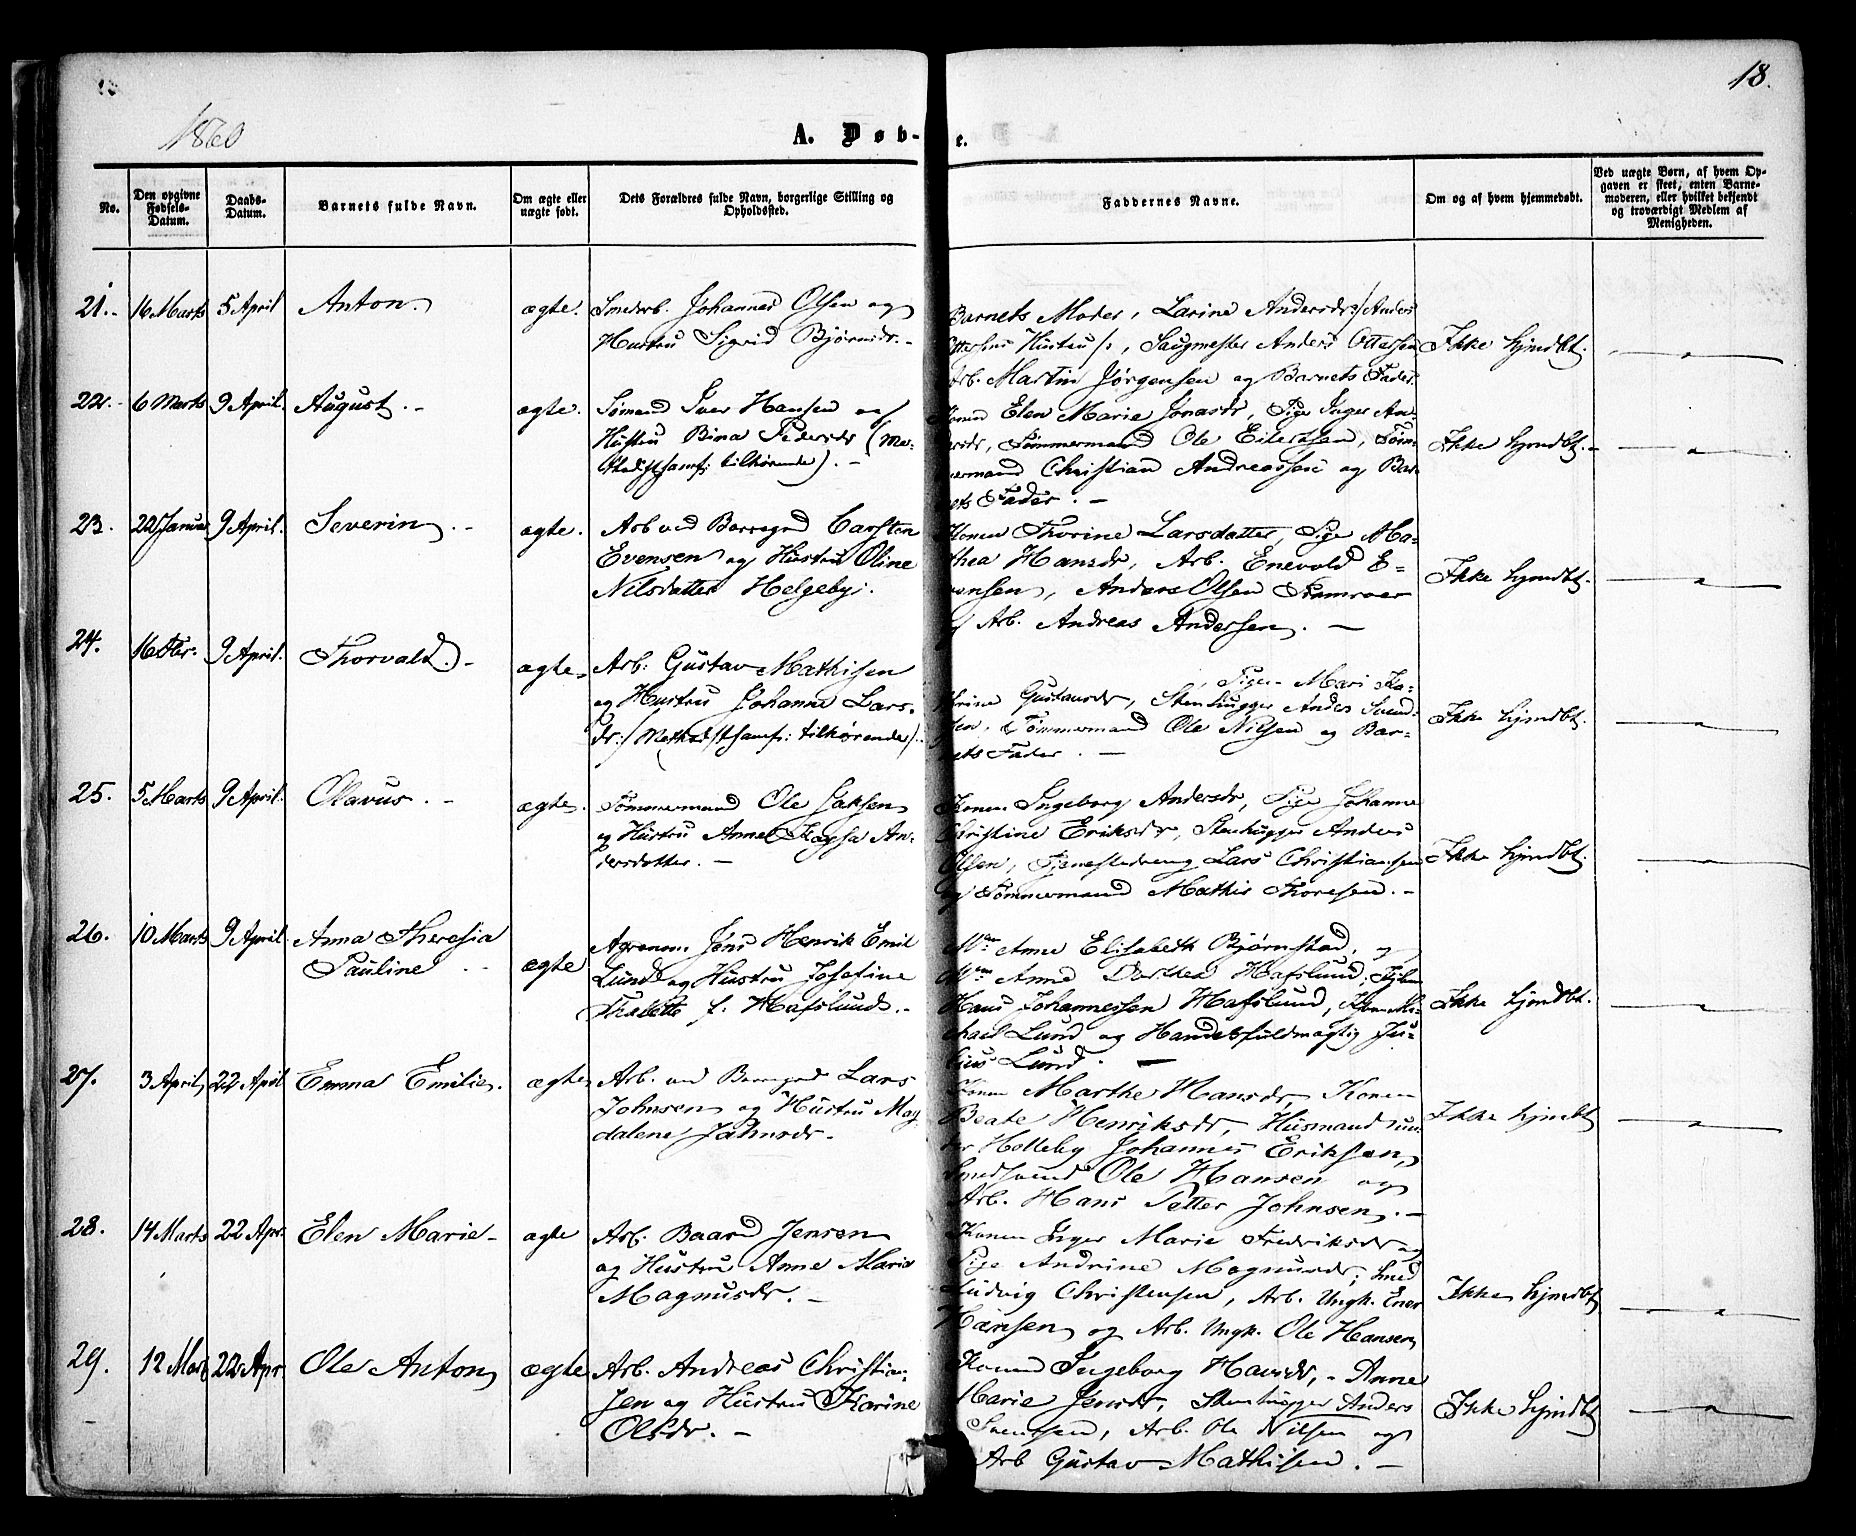 18.
1860
A. Døb-
e.
No.
Den opgivne Fødsels-Datum.
Daabs-Datum.
Barnets fulde Navn.
Om ægte eller uægte født.
Dets Forældres fulde Navn, borgerlige Stilling og Opholdssted.
Faddernes Navne.
Om og af hvem hjemmedøbt.
Ved uægte Børn, af hvem Opgaven er skeet, enten Barnemoderen, eller hvilket bekjendt og troværdigt Medlem af Menigheden.
21. 16 Marts 5 April Anton. ægte. Smedarb. Johannes Olsen og
Hustru Sigrid Bjørnsdr. -
Barnets Moder, Larine Andersdr /: Anders
Ottersens Hustru /:, Saugmester Anders Ottersen
Arb. Martin Jørgensen og Barnets Fader.
Ikke hjmdbt.
22. 6 Marts 9 April. August. - ægte. Sømand Iver Hansen og
Hustru Bina Pedersdr (Me-
thodistsamf: tilhørende). -
Konen Elen Marie Jonasdr, Pige Inger An-
dersdr, Tømmermand Ole Eilertsen, Tøm-
mermand Christian Andreassen og Bar-
nets Fader. -
Ikke hjmdbt. -
23. 22 Januar 9 April. Severin. - ægte. Arb ved Borregrd Carsten
Evensen og Hustru Oline
Nilsdatter Helgeby.
Konen Thorine Larsdatter, Pige Ma-
thea Hansdr, Arb. Enevold E-
vensen, Anders Olsen
og Arb. Andreas Andersen. -
Ikke hjmdbt.
24. 9 April. Thorvald. - ægte. Arb: Gustav Mathisen
og Hustru Johanne Lars-
dr: / Methodistsamf: tilhørende /.
, Pige Mari Ka-
thrine Gustavsdr, Stenhugger Anders Svend-
sen, Tømmermand Ole Nilsen og Bar-
nets Fader. -
Ikke hjmdbt.
25. 5 Marts 9 April. Olavus. - ægte. Tømmermand Ole
og Hustru Anne Kajsa An-
dersdatter. -
Konen Ingeborg Andersdr, Pige Johanne
Christine Eriksdr, Stenhugger Anders
Olsen, Tjenestedreng Lars Christiansen
og Tømmermand Mathis Thoresen. -
Ikke hjmdbt.
26. 10 Marts 9 April Anna Theresia
Pauline. ægte Agronom Jens Henrik Emil
Lund og Hustru Josefine
f. Hafslund. -
Mdm Anne Elisabeth Bjørnstad, og
Mdm Anne Dorthea Hafslund,
Hans Johannessen Hafslund, Mi-
chael Lund og Handelsfuldmægtig Ju-
lius Lund. -
Ikke hjmdbt.
27. 3 April 22 April Emma Emilie. ægte Arb. ved Borregrd Lars
Johnsen og Hustru Mag-
dalene Jahnsdr.
Konen Marthe Hansdr, Konen
Beate Henriksdr, Husmand un-
der Holleby Johannes Eriksen,
Smedsvend Ole Hansen og
Arb. Hans Petter Johnsen. -
Ikke hjmdbt
28. 14 Marts 22 Apr. Elen Marie - ægte Arb. Baard Jensen
og Hustru Anne Marie
Magnusdr. -
Konen Inger Marie Fredriksdr og
Pige Andrine Magnusdr, Smed
Ludvig Christensen, Arb. Ungk. Ener
Hansen og Arb. Ungk. Ole Hansen
Ikke hjmdbt
29. 12 Marts 22 Apr. Ole Anton ægte Arb. Andreas Christian-
sen og Hustru Karine
Olsdr. -
Konen Ingeborg Hansdr, - Anne
Marie Jensdr, Stenhugger Anders
Svendsen, Arb. Ole Nilsen og
Arb Gustav Mathisen. -
Ikke hjmdbt